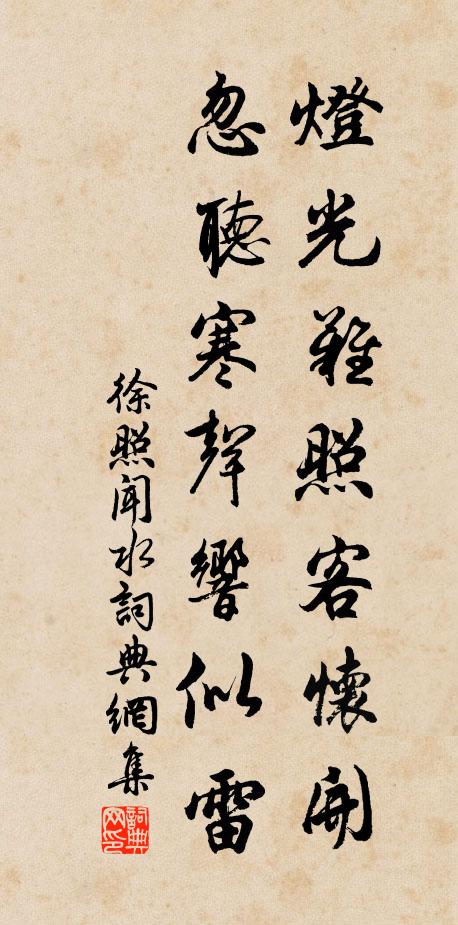 燈光難照客懷開
忽聽寒聲響似雷
徐照聞水詞典網集
詞典网印